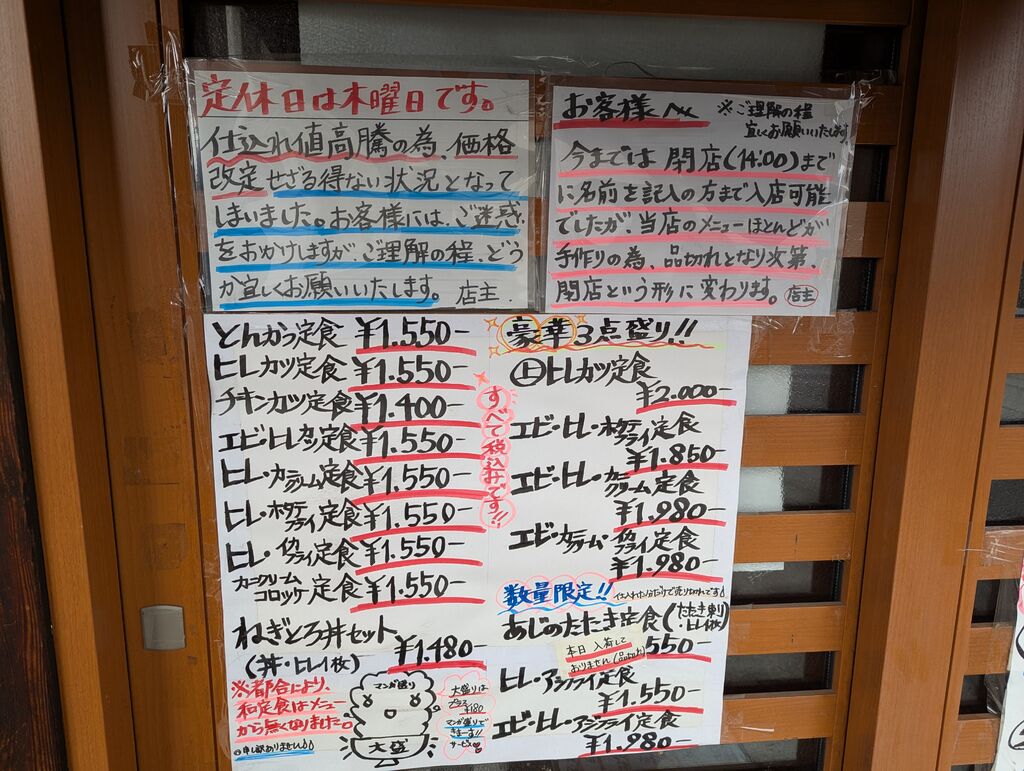 定休日は木曜日です。
仕込れ値高騰の為、価格
改定せざる得ない状況となって
しまいました。お客様には、ご迷惑
をおかけしますが、ご理解の程、どう
か宜しくお願いいたします。 店主.
お客様へ
※ご理解の程
宜しくお願いいたします
今までは 閉店(14:00)まで
に名前を記入の方まで入店可能
でしたが、当店のメニューほとんどが
手作りの為、品切れとなり次第、
閉店という形に変わります。 店主
とんかつ定食 ¥1.550-
ヒレカツ定食 ¥1.550-
チキンカツ定食 ¥1.400-
エビ・ヒレカツ定食 ¥1.550-
ヒレ・カニクリーム定食 ¥1.550-
ヒレ・ホタテフライ定食 ¥1.550-
ヒレ・イカフライ定食 ¥1.550-
カニクリームコロッケ定食 ¥1.550-
ねぎとろ丼セット
(丼・ヒレ1枚) ¥1.480-
※都合により、
和定食はメニュー
から無くなりました。
申し訳ありません
マンガ盛り
大盛
大盛りは
プラス
¥180
マンガ盛りで
きまーす!!
サービス
すべて税込みです!!
豪華3点盛り!!
上ヒレカツ定食
¥2.000-
エビ・ヒレ・ホタテフライ定食
¥1.850-
エビ・ヒレ・カニクリーム定食
¥1.980-
エビ・カニクリーム・イカフライ定食
¥1.980-
数量限定!! 仕入れた分だけで売り切れです
あじのたたき定食(たたき乗り・ヒレ1枚)
本日 入荷して
おりません(品切れ)
550-
ヒレ・アジフライ定食
¥1.550-
エビ・ヒレ・アジフライ定食
¥1.980-